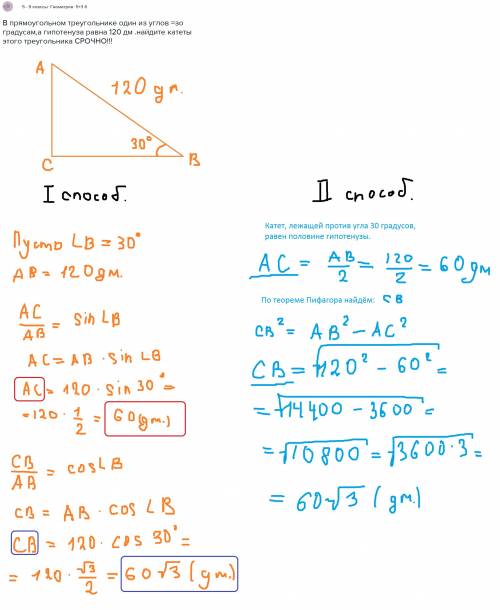 5 - 9 классы Геометрия 5+3 б
В прямоугольном треугольнике один из углов =зо
градусам,а гипотенуза равна 120 дм .найдите катеты
этого треугольника СРОЧНО!!!
A
120 дм.
30°
C
B
I способ.
Пусть ∠B = 30°
AB = 120 дм.
AC/AB = sin∠B
AC = AB · sin∠B
AC = 120 · sin 30° =
= 120 · 1/2 = 60(дм.)
CB/AB = cos∠B
CB = AB · cos∠B
CB = 120 · cos 30° =
= 120 · √3/2 = 60√3 (дм.)
II способ.
Катет, лежащей против угла 30 градусов,
равен половине гипотенузы.
AC = AB/2 = 120/2 = 60 дм
По теореме Пифагора найдём: CB
CB² = AB² − AC²
CB = √120² − 60² =
= √14400 − 3600 =
= √10800 = √3600·3 =
= 60√3 (дм.)